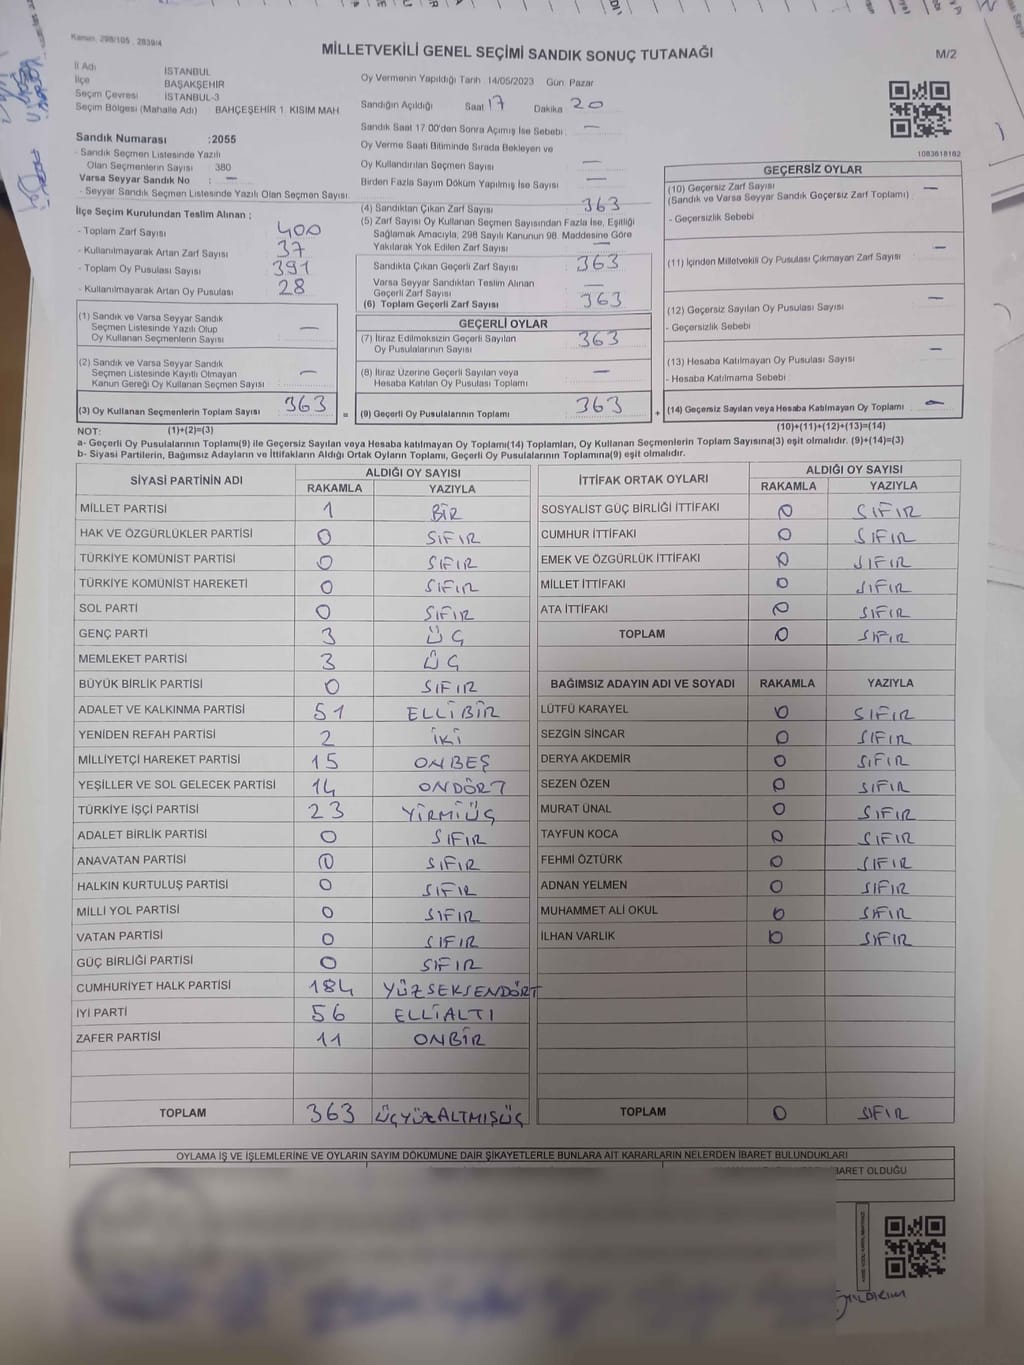 Kanun: 298/105 2839/4
MİLLETVEKİLİ GENEL SEÇİMİ SANDIK SONUÇ TUTANAĞI
M/2
İl Adı İSTANBUL
İlçe BAŞAKŞEHİR
Seçim Çevresi İSTANBUL-3
Seçim Bölgesi (Mahalle Adı) BAHÇEŞEHİR 1. KISIM MAH
Sandık Numarası :2055
- Sandık Seçmen Listesinde Yazılı
Olan Seçmenlerin Sayısı : 380
Varsa Seyyar Sandık No : —
- Seyyar Sandık Seçmen Listesinde Yazılı Olan Seçmen Sayısı:
İlçe Seçim Kurulundan Teslim Alınan ;
- Toplam Zarf Sayısı 400
- Kullanılmayarak Artan Zarf Sayısı 37
- Toplam Oy Pusulası Sayısı 391
- Kullanılmayarak Artan Oy Pusulası 28
(1) Sandık ve Varsa Seyyar Sandık
Seçmen Listesinde Yazılı Olup
Oy Kullanan Seçmenlerin Sayısı —
(2) Sandık ve Varsa Seyyar Sandık
Seçmen Listesinde Kayıtlı Olmayan
Kanun Gereği Oy Kullanan Seçmen Sayısı —
(3) Oy Kullanan Seçmenlerin Toplam Sayısı 363 =
Oy Vermenin Yapıldığı Tarih : 14/05/2023 Gün: Pazar
Sandığın Açıldığı Saat 17 Dakika 20
Sandık Saat 17:00'den Sonra Açımış İse Sebebi : —
Oy Verme Saati Bitiminde Sırada Bekleyen ve
Oy Kullandırılan Seçmen Sayısı —
Birden Fazla Sayım Döküm Yapılmış İse Sayısı —
(4) Sandıktan Çıkan Zarf Sayısı 363
(5) Zarf Sayısı Oy Kullanan Seçmen Sayısından Fazla İse, Eşitliği
Sağlamak Amacıyla, 298 Sayılı Kanunun 98. Maddesine Göre
Yakılarak Yok Edilen Zarf Sayısı —
Sandıkta Çıkan Geçerli Zarf Sayısı 363
Varsa Seyyar Sandıktan Teslim Alınan
Geçerli Zarf Sayısı —
(6) Toplam Geçerli Zarf Sayısı 363
GEÇERLİ OYLAR
(7) İtiraz Edilmeksizin Geçerli Sayılan
Oy Pusulalarının Sayısı 363
(8) İtiraz Üzerine Geçerli Sayılan veya
Hesaba Katılan Oy Pusulası Toplamı —
(9) Geçerli Oy Pusulalarının Toplamı 363 +
1083618182
GEÇERSİZ OYLAR
(10) Geçersiz Zarf Sayısı —
(Sandık ve Varsa Seyyar Sandık Geçersiz Zarf Toplamı) :
- Geçersizlik Sebebi
(11) İçinden Milletvekili Oy Pusulası Çıkmayan Zarf Sayısı —
(12) Geçersiz Sayılan Oy Pusulası Sayısı —
- Geçersizlik Sebebi
(13) Hesaba Katılmayan Oy Pusulası Sayısı —
- Hesaba Katılmama Sebebi :
(14) Geçersiz Sayılan veya Hesaba Katılmayan Oy Toplamı —
NOT: (1)+(2)=(3) (10)+(11)+(12)+(13)=(14)
a- Geçerli Oy Pusulalarının Toplamı(9) ile Geçersiz Sayılan veya Hesaba katılmayan Oy Toplamı(14) Toplamları, Oy Kullanan Seçmenlerin Toplam Sayısına(3) eşit olmalıdır. (9)+(14)=(3)
b- Siyasi Partilerin, Bağımsız Adayların ve İttifakların Aldığı Ortak Oyların Toplamı, Geçerli Oy Pusulalarının Toplamına(9) eşit olmalıdır.
SİYASİ PARTİNİN ADI ALDIĞI OY SAYISI
RAKAMLA YAZIYLA
MİLLET PARTİSİ 1 BİR
HAK VE ÖZGÜRLÜKLER PARTİSİ 0 SIFIR
TÜRKİYE KOMÜNİST PARTİSİ 0 SIFIR
TÜRKİYE KOMÜNİST HAREKETİ 0 SIFIR
SOL PARTİ 0 SIFIR
GENÇ PARTİ 3 ÜÇ
MEMLEKET PARTİSİ 3 ÜÇ
BÜYÜK BİRLİK PARTİSİ 0 SIFIR
ADALET VE KALKINMA PARTİSİ 51 ELLİBİR
YENİDEN REFAH PARTİSİ 2 İKİ
MİLLİYETÇİ HAREKET PARTİSİ 15 ONBEŞ
YEŞİLLER VE SOL GELECEK PARTİSİ 14 ONDÖRT
TÜRKİYE İŞÇİ PARTİSİ 23 YİRMİÜÇ
ADALET BİRLİK PARTİSİ 0 SIFIR
ANAVATAN PARTİSİ 0 SIFIR
HALKIN KURTULUŞ PARTİSİ 0 SIFIR
MİLLİ YOL PARTİSİ 0 SIFIR
VATAN PARTİSİ 0 SIFIR
GÜÇ BİRLİĞİ PARTİSİ 0 SIFIR
CUMHURİYET HALK PARTİSİ 184 YÜZSEKSENDÖRT
İYİ PARTİ 56 ELLİALTI
ZAFER PARTİSİ 11 ONBİR
TOPLAM 363 ÜÇYÜZALTMIŞÜÇ
İTTİFAK ORTAK OYLARI ALDIĞI OY SAYISI
RAKAMLA YAZIYLA
SOSYALİST GÜÇ BİRLİĞİ İTTİFAKI 0 SIFIR
CUMHUR İTTİFAKI 0 SIFIR
EMEK VE ÖZGÜRLÜK İTTİFAKI 0 SIFIR
MİLLET İTTİFAKI 0 SIFIR
ATA İTTİFAKI 0 SIFIR
TOPLAM 0 SIFIR
BAĞIMSIZ ADAYIN ADI VE SOYADI RAKAMLA YAZIYLA
LÜTFÜ KARAYEL 0 SIFIR
SEZGİN SİNCAR 0 SIFIR
DERYA AKDEMİR 0 SIFIR
SEZEN ÖZEN 0 SIFIR
MURAT ÜNAL 0 SIFIR
TAYFUN KOCA 0 SIFIR
FEHMİ ÖZTÜRK 0 SIFIR
ADNAN YELMEN 0 SIFIR
MUHAMMET ALİ OKUL 0 SIFIR
İLHAN VARLIK 0 SIFIR
TOPLAM 0 SIFIR
OYLAMA İŞ VE İŞLEMLERİNE VE OYLARIN SAYIM DÖKÜMÜNE DAİR ŞİKAYETLERLE BUNLARA AİT KARARLARIN NELERDEN İBARET BULUNDUKLARI
İBARET OLDUĞU
YILDIRIM